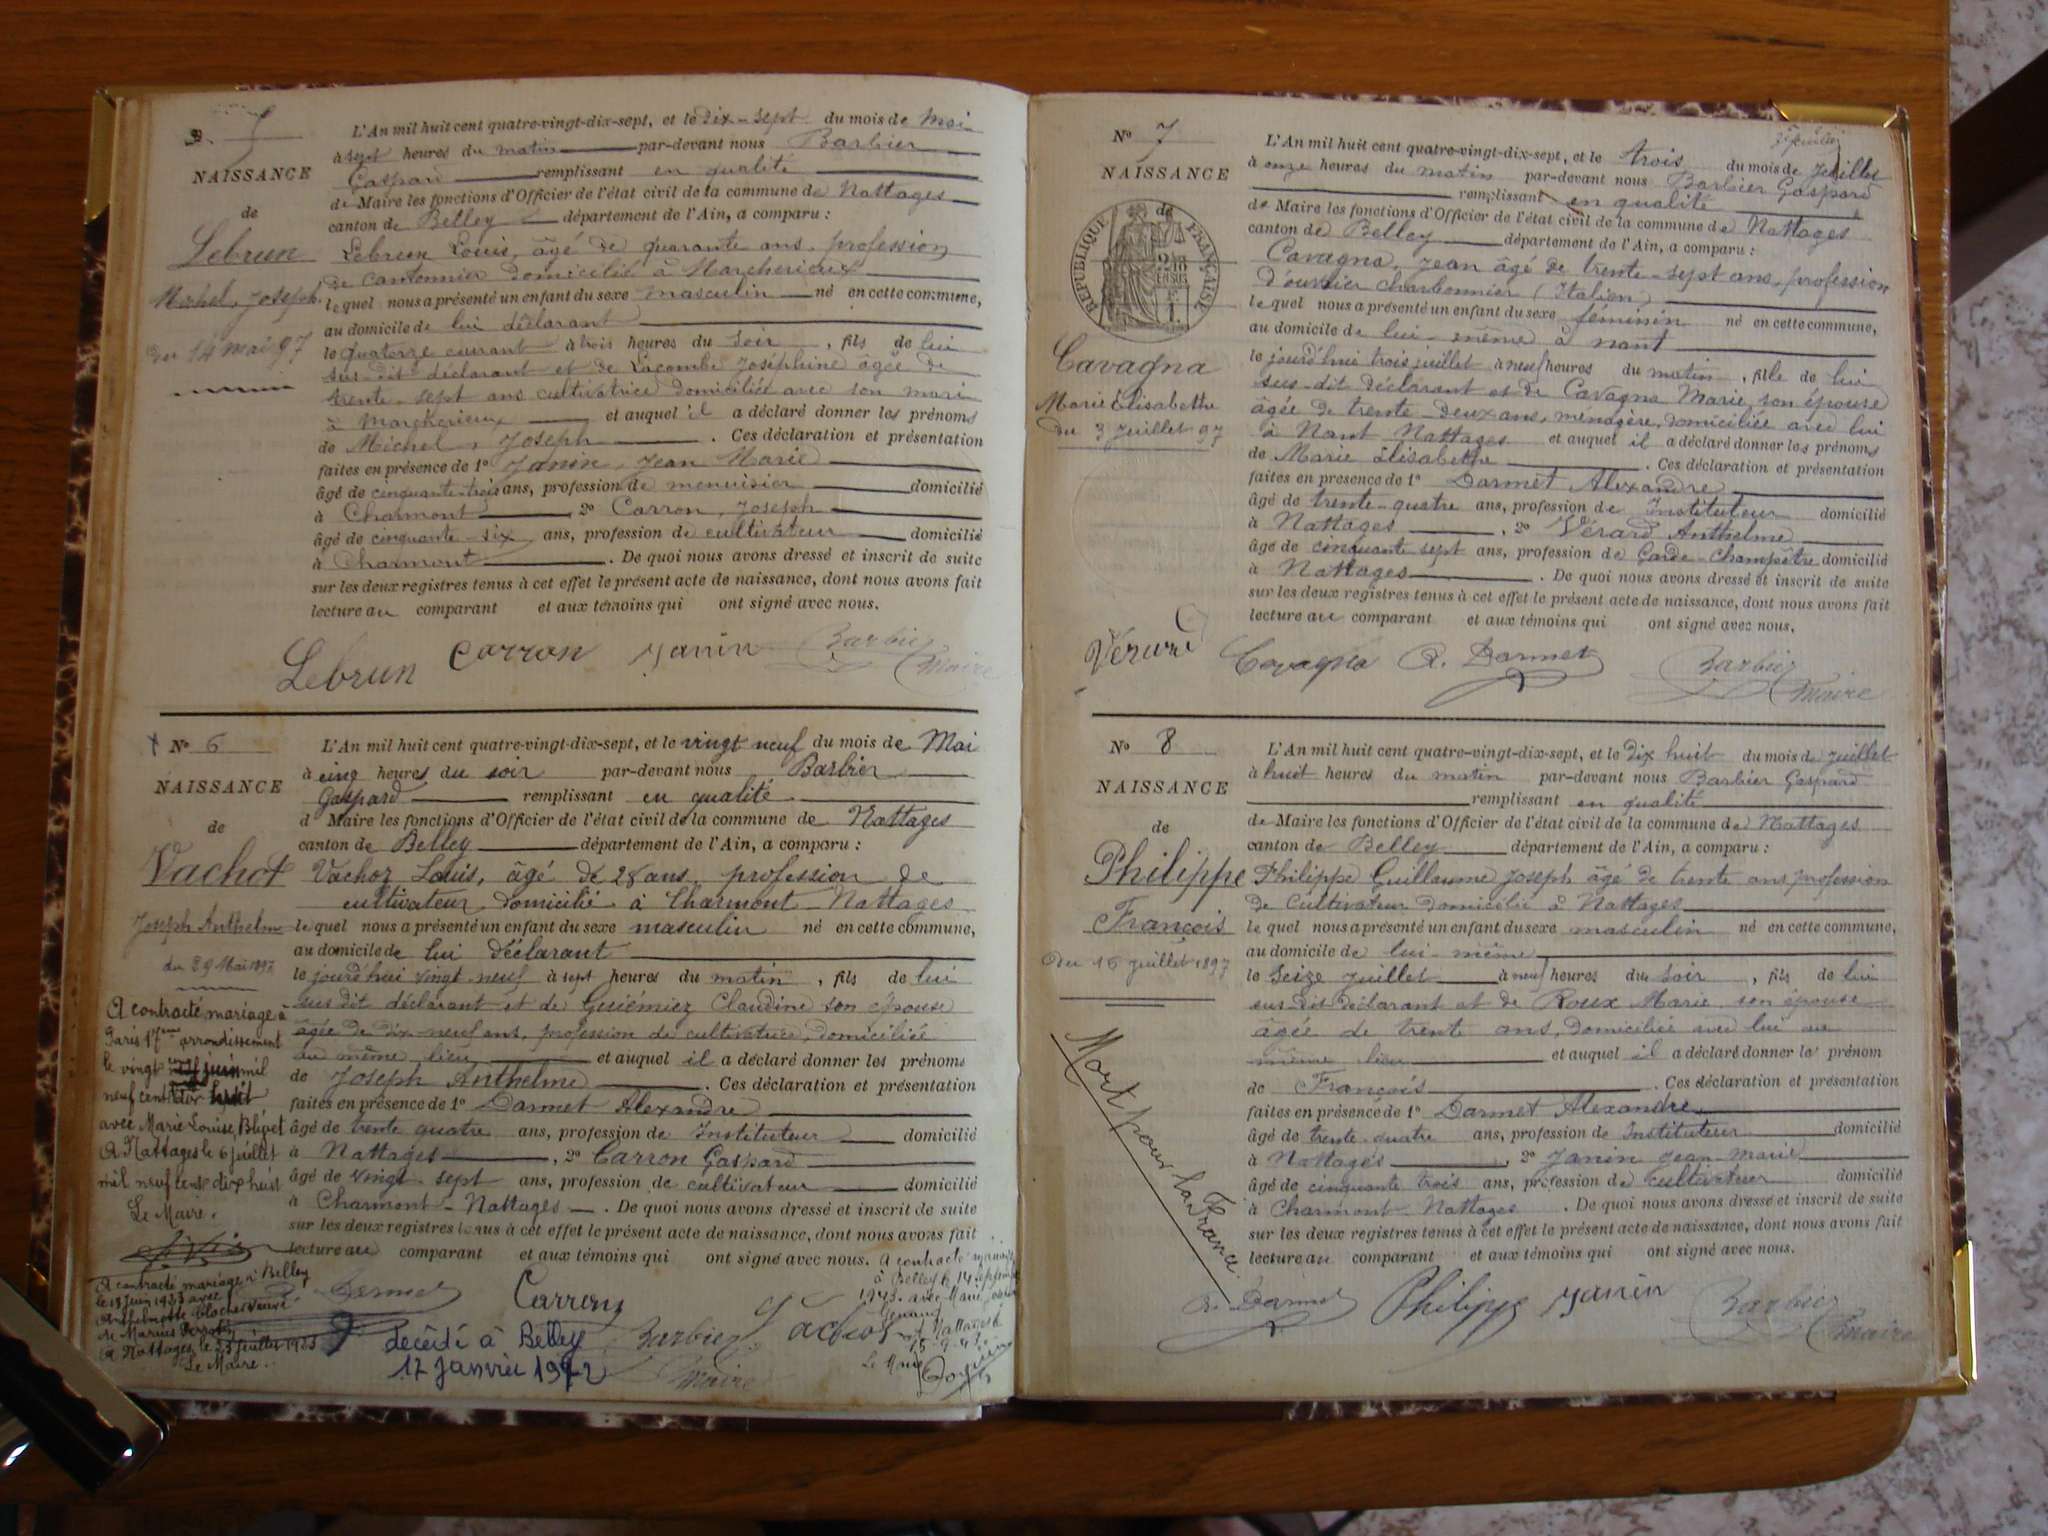 5
NAISSANCE
de
Lebrun
Michel, Joseph
du 14 mai 97
L'An mil huit cent quatre-vingt-dix-sept, et le dix-sept du mois de Mai
à sept heures du matin par-devant nous Barbier
Gaspard remplissant en qualité
de Maire les fonctions d'Officier de l'état civil de la commune de Nattages
canton de Belley département de l'Ain, a comparu :
Lebrun Louis, âgé de quarante ans, profession
de cantonnier domicilié à Marcherieux
lequel nous a présenté un enfant du sexe masculin né en cette commune,
au domicile de lui déclarant
le quatorze courant à trois heures du soir, fils de lui
sus-dit déclarant et de Lacombe Joséphine âgée de
trente-sept ans cultivatrice domiciliée avec son mari
à Marcherieux et auquel il a déclaré donner les prénoms
de Michel, Joseph. Ces déclaration et présentation
faites en présence de 1° Janin, Jean Marie
âgé de cinquante-trois ans, profession de menuisier domicilié
à Charmont, 2° Carron, Joseph
âgé de cinquante-six ans, profession de cultivateur domicilié
à Charmont. De quoi nous avons dressé et inscrit de suite
sur les deux registres tenus à cet effet le présent acte de naissance, dont nous avons fait
lecture au comparant et aux témoins qui ont signé avec nous.
Lebrun Carron Janin Barbier
Maire
N° 6
NAISSANCE
de
Vachot
Joseph Anthelme
du 29 Mai 1897
A contracté mariage à
Paris 17ème arrondissement
le vingt juin mil
neuf cent
avec Marie Louise, Blipet
A Nattages le 6 juillet
mil neuf cent dix huit
Le Maire.
A contracté mariage à Belley
le 13 Juin 1923 avec
Anthelmette Clocher veuve
de Marius
A Nattages, le 23 juillet 1923
Le Maire.
L'An mil huit cent quatre-vingt-dix-sept, et le vingt neuf du mois de Mai
à cinq heures du soir par-devant nous Barbier
Gaspard remplissant en qualité
d Maire les fonctions d'Officier de l'état civil de la commune de Nattages
canton de Belley département de l'Ain, a comparu :
Vachoz Louis, âgé de 28 ans, profession de
cultivateur domicilié à Charmont-Nattages
lequel nous a présenté un enfant du sexe masculin né en cette commune,
au domicile de lui déclarant
le jourd'hui vingt-neuf à sept heures du matin, fils de lui
sus dit déclarant et de Guiémiez Claudine son épouse
âgée de dix-neuf ans, profession de cultivatrice, domiciliée
au même lieu et auquel il a déclaré donner les prénoms
de Joseph Anthelme. Ces déclaration et présentation
faites en présence de 1° Darmet Alexandre
âgé de trente quatre ans, profession de Instituteur domicilié
à Nattages, 2° Carron Gaspard
âgé de vingt-sept ans, profession de cultivateur domicilié
à Charmont-Nattages. De quoi nous avons dressé et inscrit de suite
sur les deux registres tenus à cet effet le présent acte de naissance, dont nous avons fait
lecture au comparant et aux témoins qui ont signé avec nous.
A contracté mariage
à Belley le 14 Septembre
1943 avec Marie
Nattages le
15-9-43
Le Maire
Darmet Carron Vachoz
Barbier
Maire
Décédé à Belley
12 janvier 1972
N° 7
NAISSANCE
de
RÉPUBLIQUE FRANÇAISE
Cavagna
Marie Elisabethe
du 3 Juillet 97
3 juillet
L'An mil huit cent quatre-vingt-dix-sept, et le trois du mois de Juillet
à onze heures du matin par-devant nous Barbier Gaspard
remplissant en qualité
de Maire les fonctions d'Officier de l'état civil de la commune de Nattages
canton de Belley département de l'Ain, a comparu :
Cavagna, Jean âgé de trente-sept ans, profession
d'ouvrier charbonnier (Italien)
lequel nous a présenté un enfant du sexe féminin né en cette commune,
au domicile de lui-même à nant
le jourd'hui trois juillet à neuf heures du matin, fille de lui
sus-dit déclarant et de Cavagna Marie, son épouse
âgée de trente-deux ans, ménagère, domiciliée avec lui
à Nant Nattages et auquel il a déclaré donner les prénoms
de Marie Elisabethe. Ces déclaration et présentation
faites en présence de 1° Darmet Alexandre
âgé de trente-quatre ans, profession de Instituteur domicilié
à Nattages, 2° Vérard Anthelme
âgé de cinquante sept ans, profession de Garde-Champêtre domicilié
à Nattages. De quoi nous avons dressé et inscrit de suite
sur les deux registres tenus à cet effet le présent acte de naissance, dont nous avons fait
lecture au comparant et aux témoins qui ont signé avec nous.
Verard Cavagna A. Darmet Barbier
Maire
N° 8
NAISSANCE
de
Philippe
François
du 16 juillet 1897
Mort pour la France
L'An mil huit cent quatre-vingt-dix-sept, et le dix huit du mois de Juillet
à huit heures du matin par-devant nous Barbier Gaspard
remplissant en qualité
de Maire les fonctions d'Officier de l'état civil de la commune de Nattages
canton de Belley département de l'Ain, a comparu :
Philippe Guillaume Joseph âgé de trente ans profession
de Cultivateur domicilié à Nattages
lequel nous a présenté un enfant du sexe masculin né en cette commune,
au domicile de lui-même
le Seize Juillet à neuf heures du soir, fils de lui
sus-dit déclarant et de Roux Marie son épouse
âgée de trente ans, domiciliée avec lui au
même lieu et auquel il a déclaré donner le prénom
de François. Ces déclaration et présentation
faites en présence de 1° Darmet Alexandre
âgé de trente-quatre ans, profession de Instituteur domicilié
à Nattages, 2° Janin Jean-Marie
âgé de cinquante trois ans, profession de cultivateur domicilié
à Charmont-Nattages. De quoi nous avons dressé et inscrit de suite
sur les deux registres tenus à cet effet le présent acte de naissance, dont nous avons fait
lecture au comparant et aux témoins qui ont signé avec nous.
A. Darmet Philippe Janin Barbier
Maire